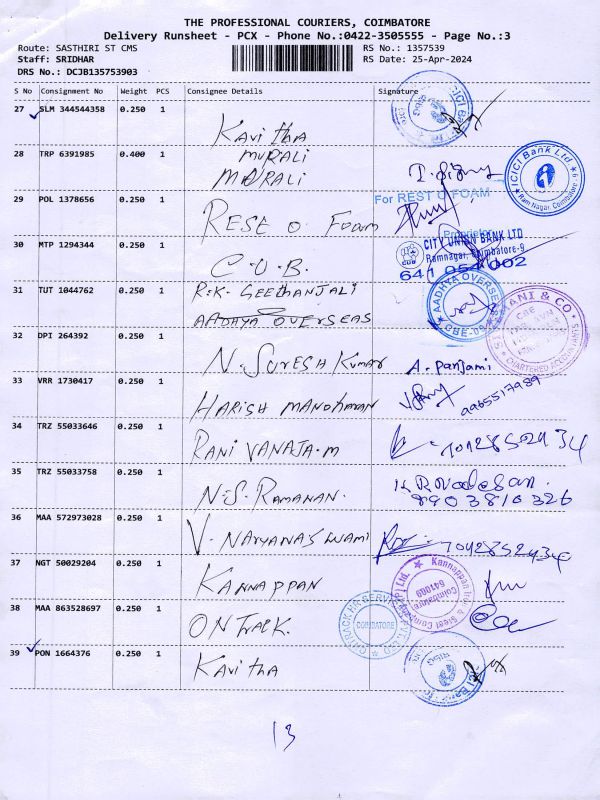 THE PROFESSIONAL COURIERS, COIMBATORE
Delivery Runsheet - PCX - Phone No.:0422-3505555 - Page No.:3
Route: SASTHIRI ST CMS
RS No.: 1357539
Staff: SRIDHAR
RS Date: 25-Apr-2024
DRS No.: DCJB135753903
S No Consignment No Weight PCS Consignee Details Signature
27 SLM 344544358 0.250 1
Kavitha
28 TRP 6391985 0.400 1
MURALI
MURALI
ICICI Bank Ltd
Ram Nagar, Coimbatore-9
29 POL 1378656 0.250 1
REST O Foam
For REST O FOAM
Proprietor
30 MTP 1294344 0.250 1
C.U.B.
CITY UNION BANK LTD
Ramnagar, Coimbatore-9
641 054 002
31 TUT 1044762 0.250 1
R.K. GEETHANJALI
AADHYA OVERSEAS
AADHYA OVERSEAS
CBE-09
& CO
CHARTERED ACCOUNTANTS
32 DPI 264392 0.250 1
N. SURESH KUMAR
A. Panjami
33 VRR 1730417 0.250 1
HARISH MANOHARAN
9965517989
34 TRZ 55033646 0.250 1
RANI VANAJA.M
35 TRZ 55033758 0.250 1
N.S. RAMANAN.
8903810326
36 MAA 572973028 0.250 1
V. NARYANASWAMI
37 NGT 50029204 0.250 1
KANNAPPAN
Kannappan Iron & Steel Company (P) Ltd.
Coimbatore
641009
38 MAA 863528697 0.250 1
ONTRACK.
COIMBATORE
39 PON 1664376 0.250 1
Kavitha
13